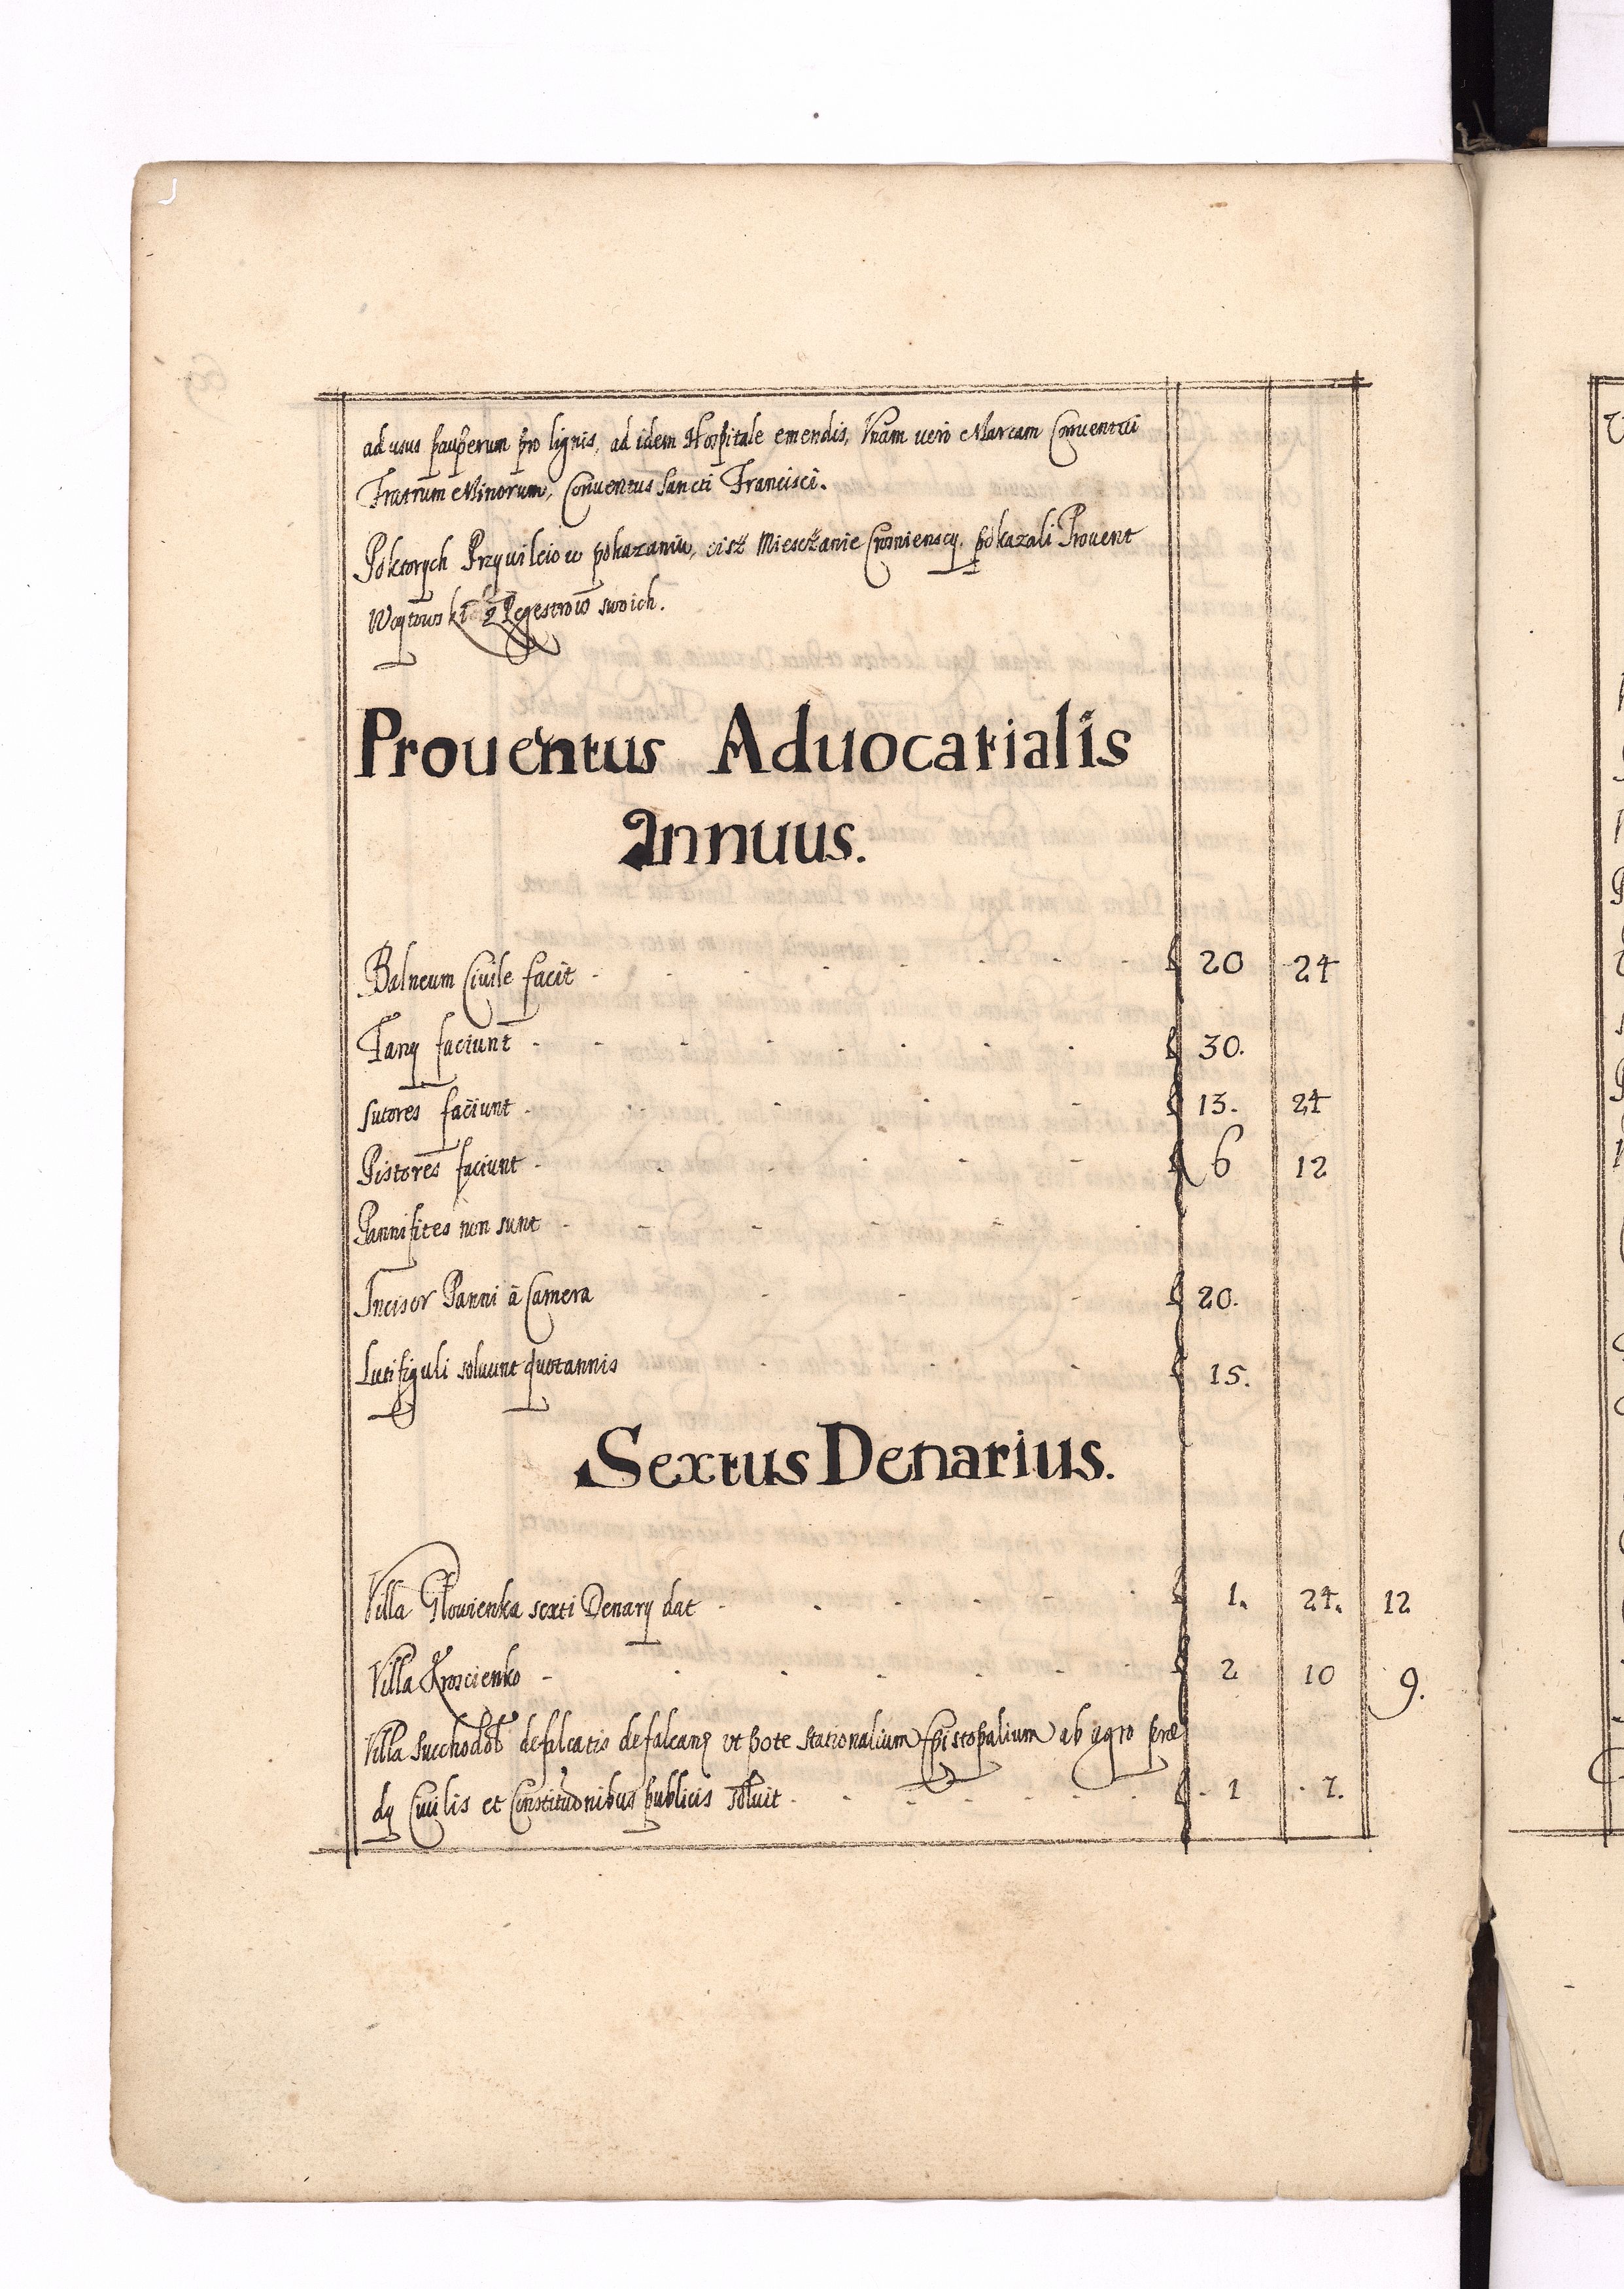 ad usus pauperum pro lignis, ad idem Hospitale emendis, Vnam uero Marcam Conuentui
Fratrum Minorum, Conuentus Sancti Francisci.
Poktorych Przywileiow pokazaniu, cisz Miesczanie Crosnienscy pokazali Prouent
Woÿtowski z Regestrow swoich.
Prouentus Aduocatialis
Annuus.
Balneum Ciuile facit - 20 24
Lanÿ faciunt - 30.
Sutores faciunt - 13. 24
Pistores faciunt - 6 12
Pannifices non sunt -
Incisor Panni à Camera 20.
Lutifiguli soluunt quotannis 15.
Sextus Denarius.
Villa Glowienka sexti Denarÿ dat - 1. 24. 12
Villa Kroscienko - 2 10 9.
Villa Succhodol defalcatis defalcandis vt pote stationalium Episcopalium ab agro præ
dÿ Ciuilis et Constitutionibus publicis soluit - 1 7.